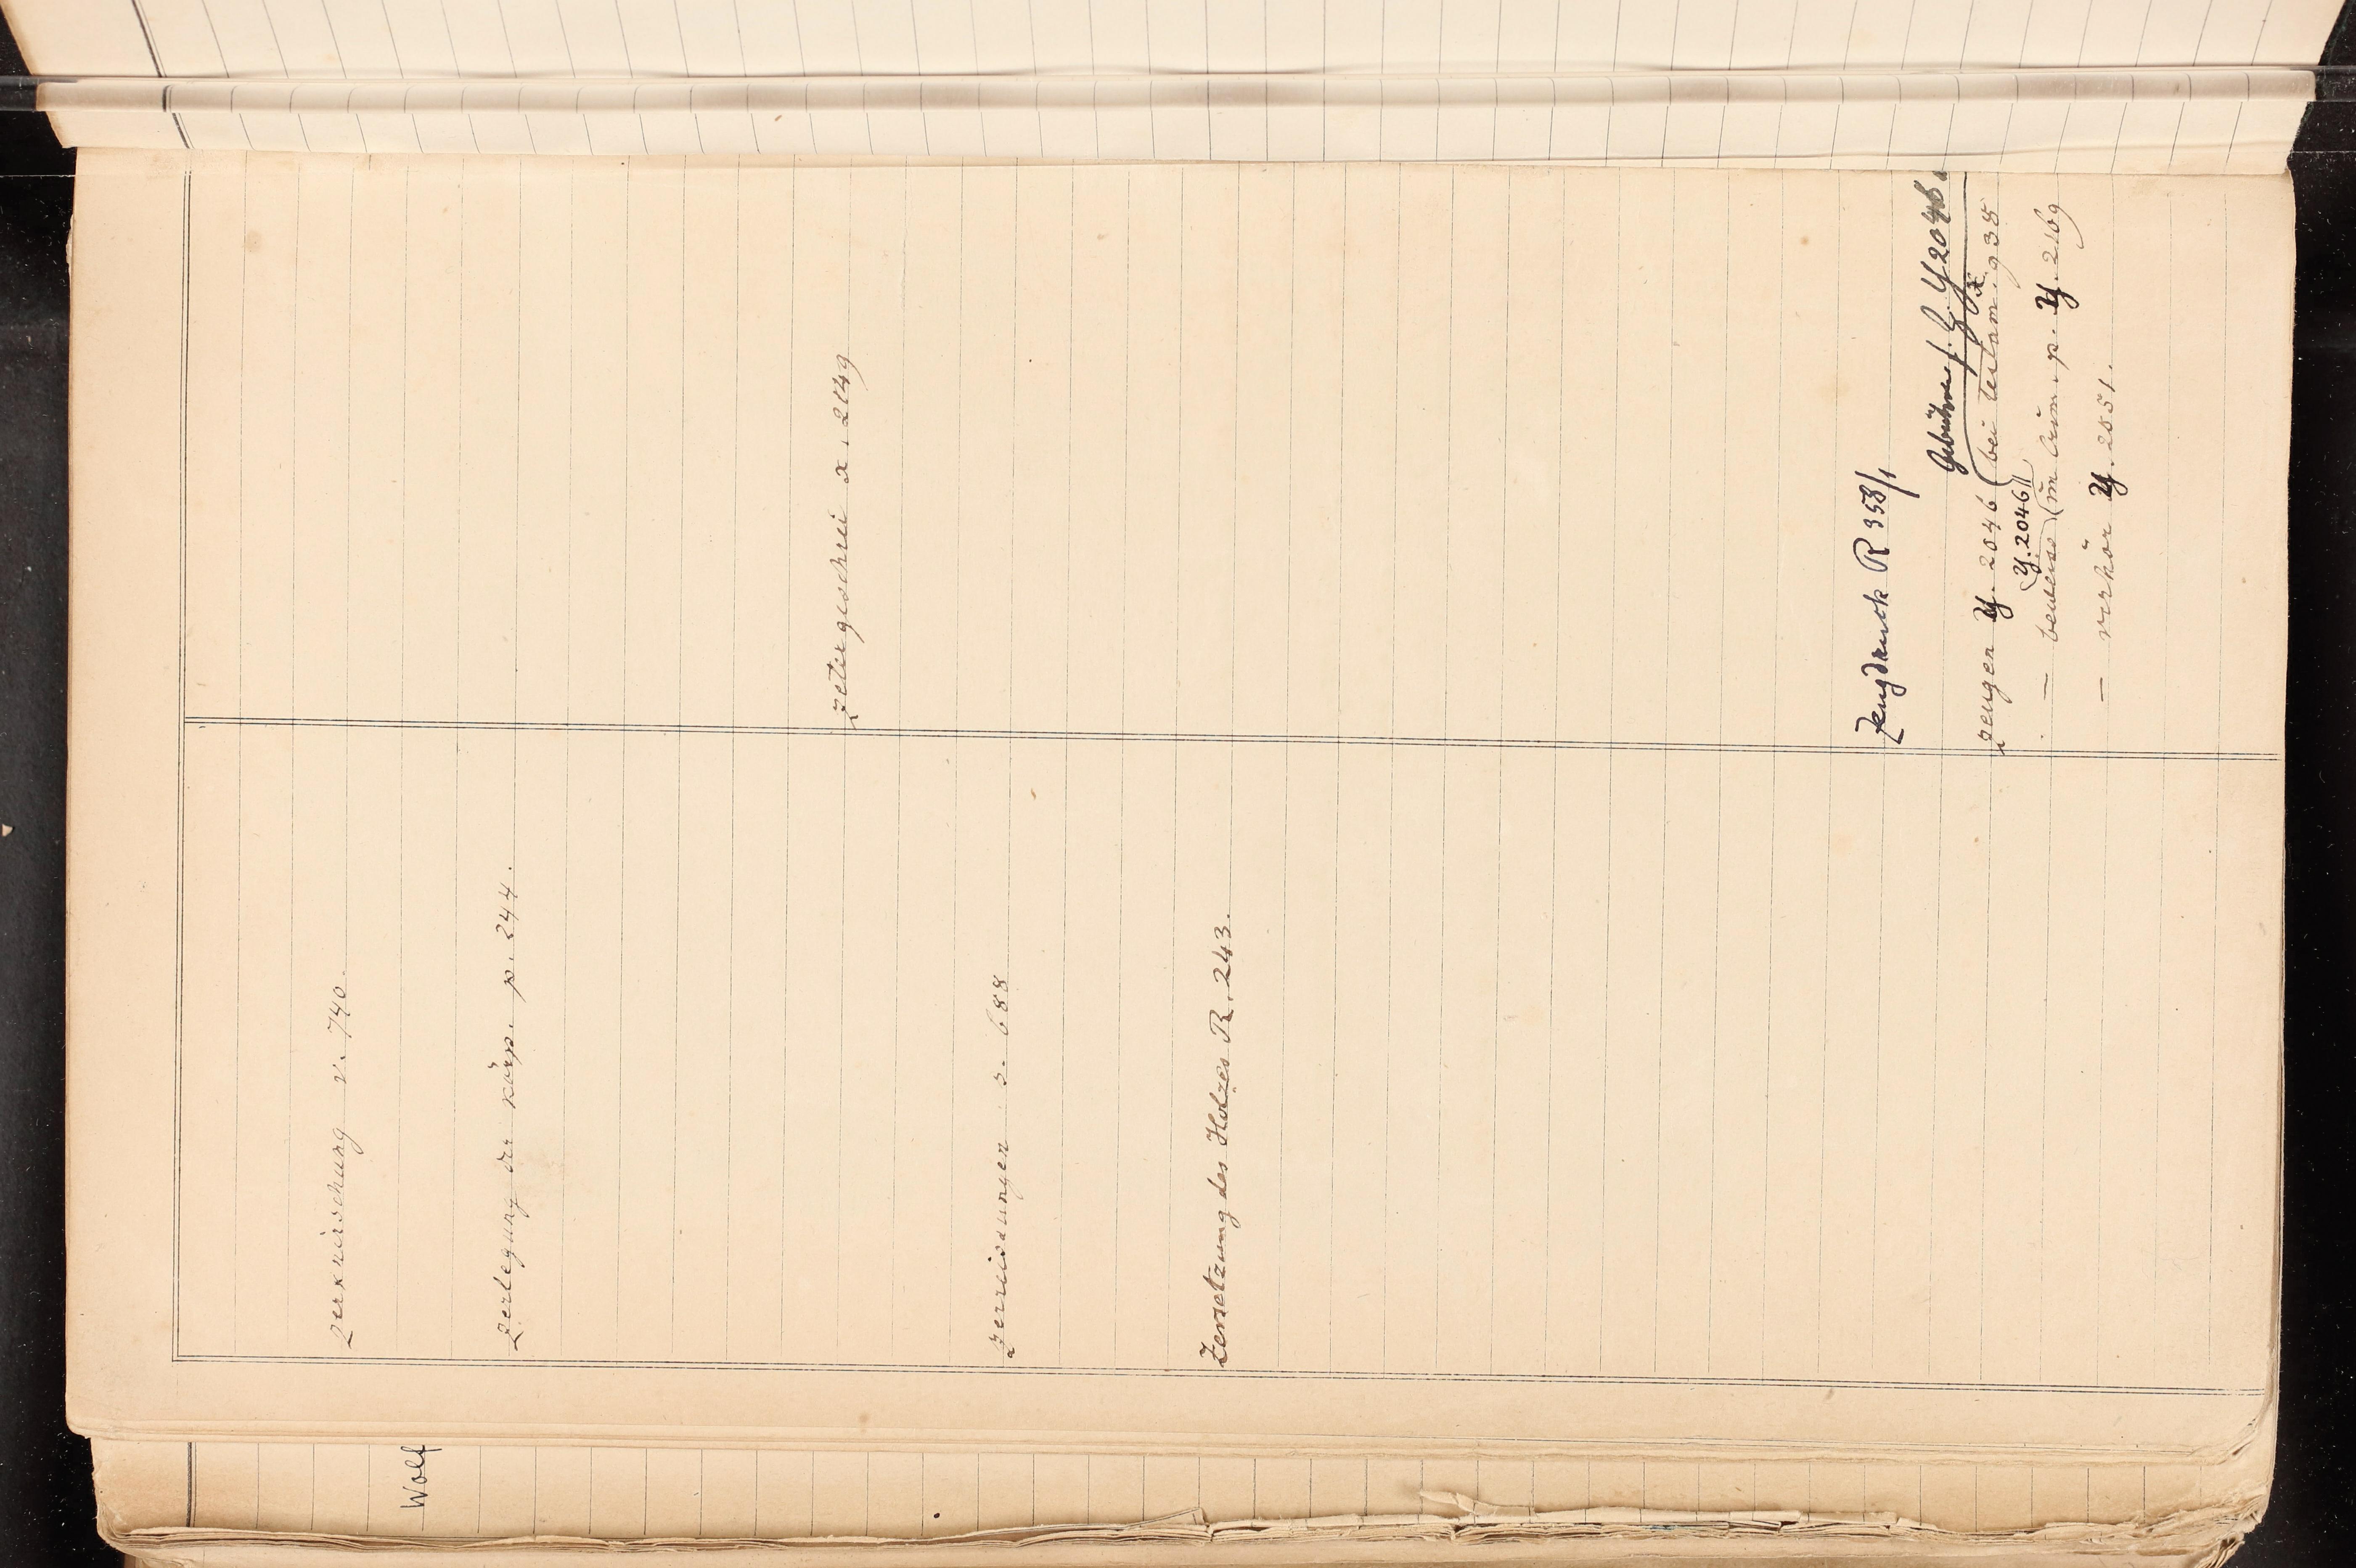 zerknirschung v. 740.
zerlegung der körp. p. 244.
zerreissungen s. 688
Zersetzung des Holzes R. 243.
zetergeschrei x. 2149
Zeugdruck R 358/1
Gebühren f. Z. Y 2046
zeugen Y. 2046 (bei testam. x. 938
(Y. 2046)
— beweiss (im crim. p. Y. 2169
— verhör Y. 2051.
Wolf